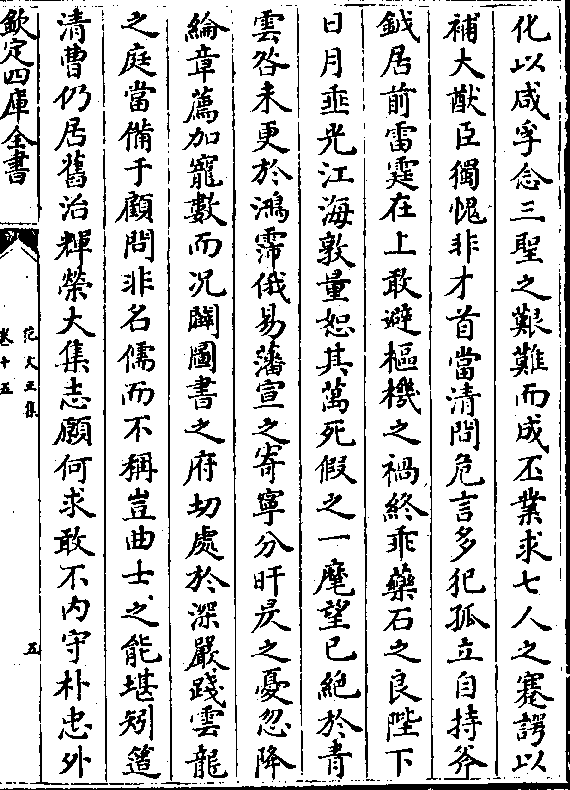 化以咸孚念三聖之艱難而成丕業求七人之蹇諤以
補大猷臣獨愧非才首當清問危言多犯孤立自持斧
鉞居前雷霆在上敢避樞機之禍終乖藥石之良陛下
日月垂光江海敦量恕其萬死假之一麾望已絶於青
雲咎未更於鴻霈俄易藩宣之寄寧分旰昃之憂忽降
綸章薦加寵數而況闢圖書之府切處於深嚴踐雲龍
之庭當備于顧問非名儒而不稱豈曲士之能堪矧簉
清曹仍居舊治輝榮大集志願何求敢不内守朴忠外
欽定四庫全書
范文正集
卷十五
五